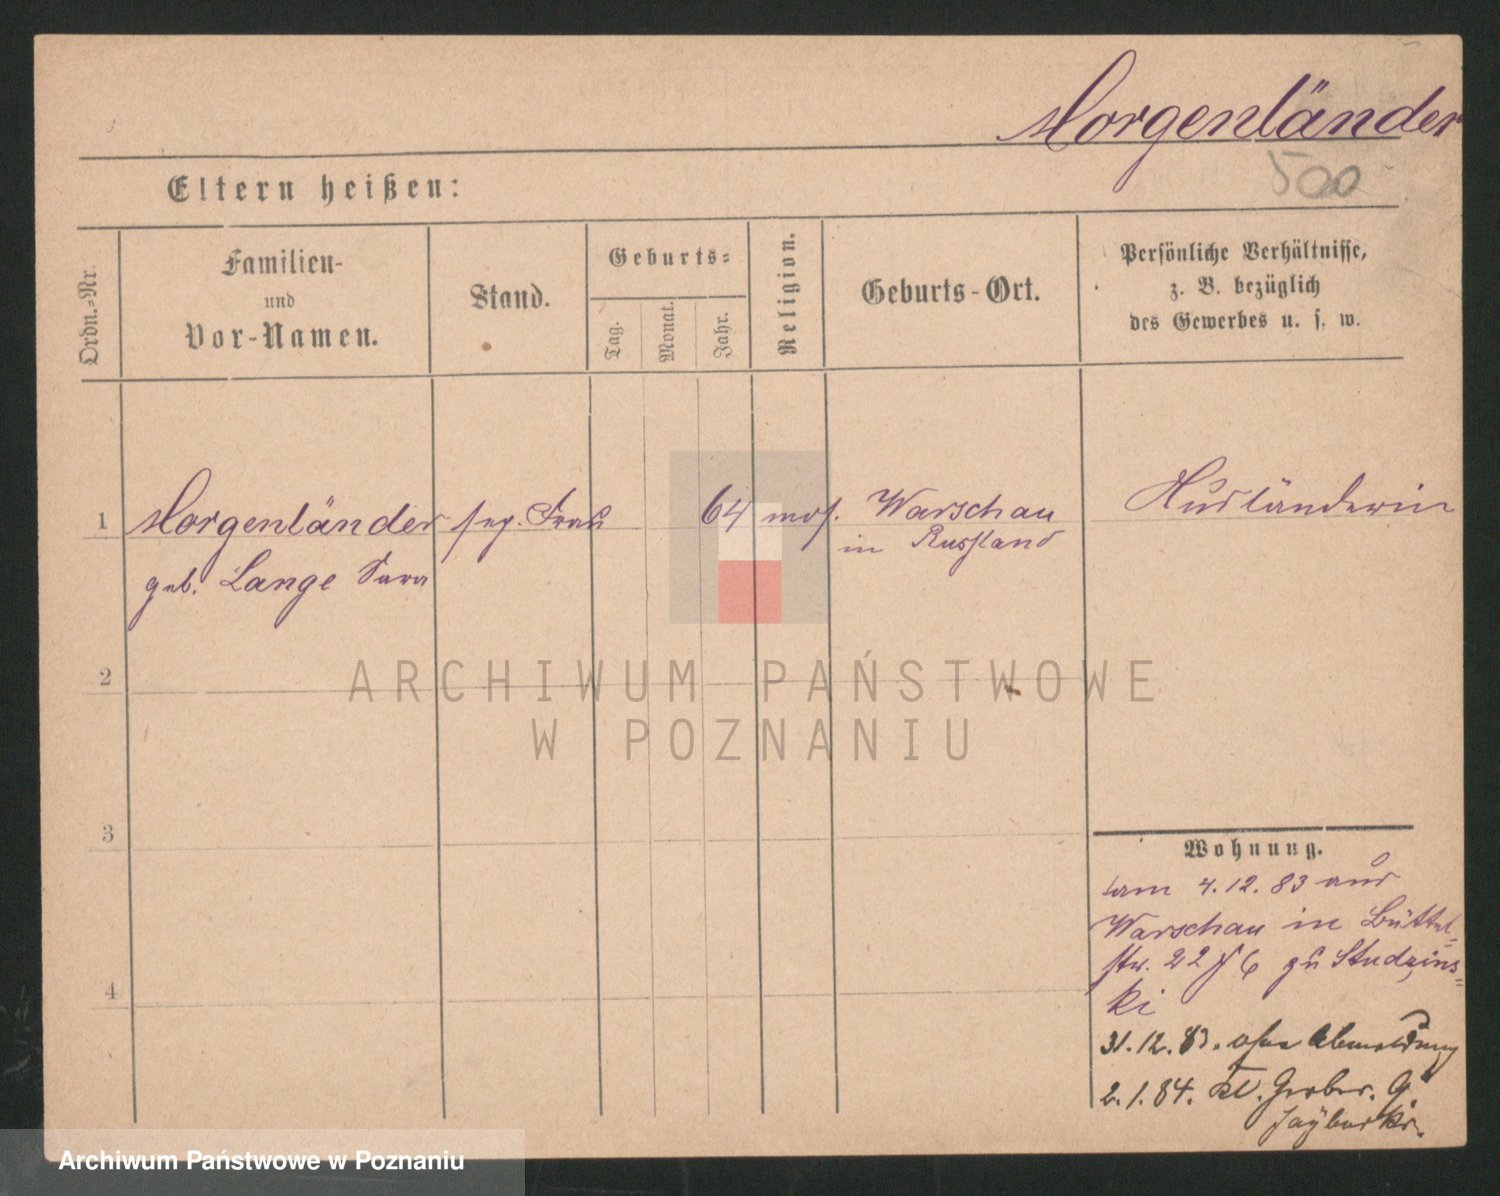 Morgenländer
500
Eltern heißen:
Ordn.-Nr.
Familien-
und
Vor-Namen.
Stand.
Geburts-
Tag.
Monat.
Jahr.
Religion.
Geburts-Ort.
Persönliche Verhältnisse,
z. B. bezüglich
des Gewerbes u. s. w.
1 Morgenländer sep. Frau 64 mos. Warschau
in Russland
geb. Lange Sara
Ausländerin
2
ARCHIWUM PAŃSTWOWE
W POZNANIU
3
4
Wohnung.
kam 4.12.83 aus
Warschau in Büttel-
str. 22 zu Studzins-
ki
31.12.83. ohne Abmeldung
2.1.84. Kl. Gerber. 9.
Archiwum Państwowe w Poznaniu